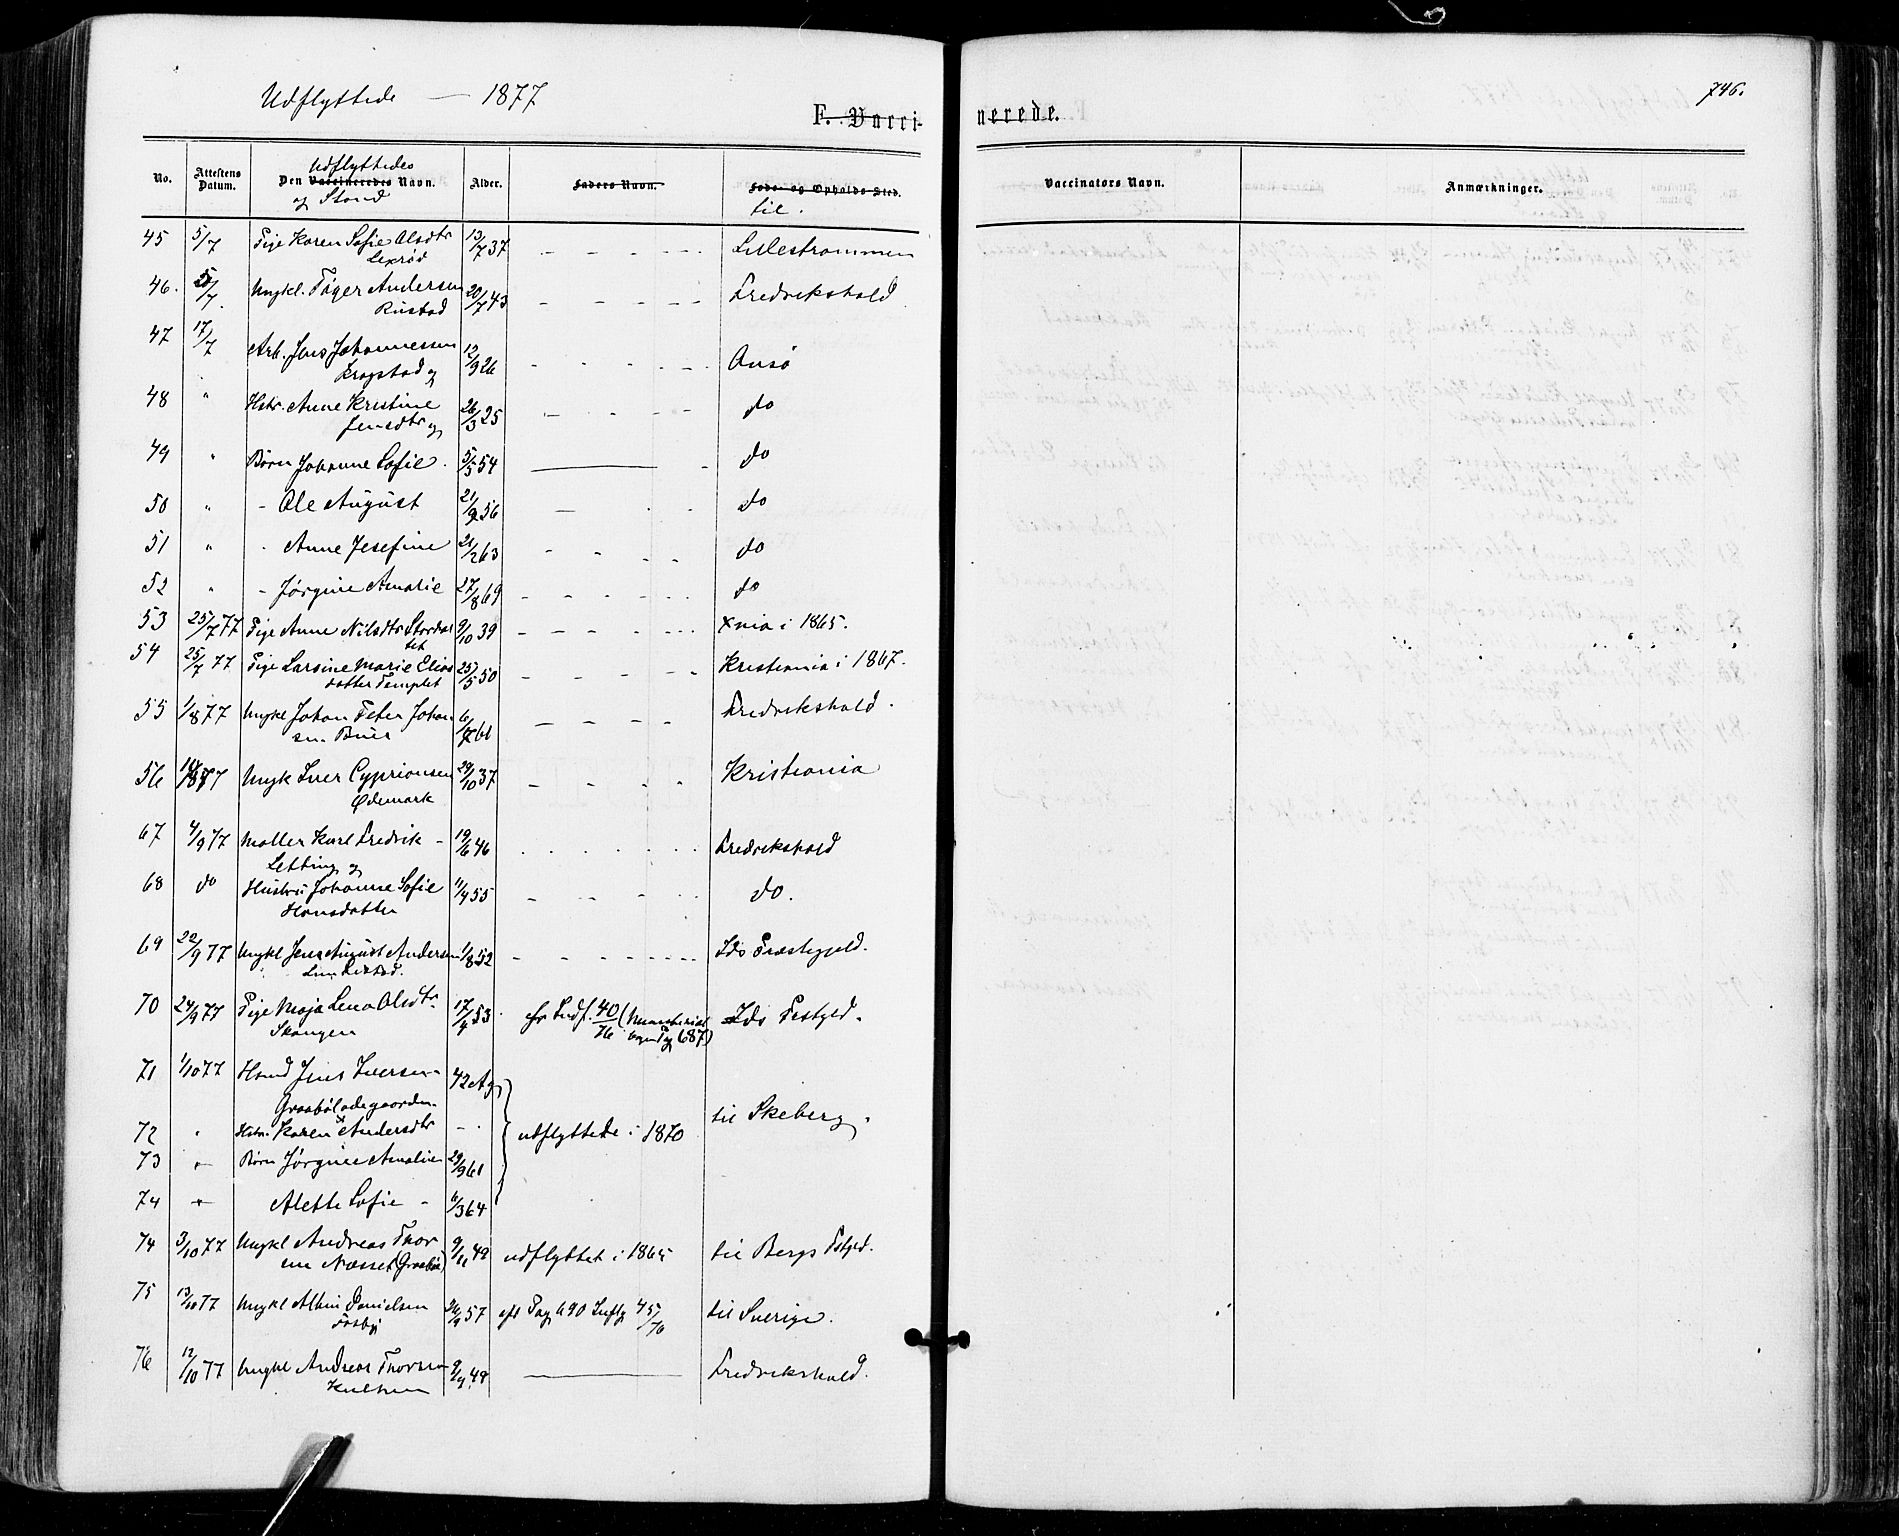 746.
Udflyttede — 1877
F. Vacci-
nerede.
No.
Attestens Datum.
Udflyttedes
Den Vaccineredes Navn.
og Stand
Alder.
Faders Navn.
Føde- og Opholds Sted.
til.
Vaccinators Navn.
Anmærkninger.
45 5/7 Pige Karen Sofie Olsdtr 13/7 37 Lillestrømmen
Lexrød
46. 5/7. Ungkl. Tøger Andersen 20/7 43 Fredrikshald
Rustad
47 17/7 Arb. Jens Johannessen 12/9 26 Onsø
Krogstad og
48 " Hstr. Anne Kristine 26/3 25 do
Jensdtr og
49 " Børn Johanne Sofie. 5/5 54 do
50 " - Ole August 21/9 56 do
51 " - Anne Josefine 21/2 63 do
52 " - Jørgine Amalie 27/8 69 do
53 25/7 77 Pige Anne Nilsdtr Stordal 9/10 39 Xnia i 1865.
54 25/7 77 Pige Larsine Marie Elias 25/5 50 Kristiania i 1867.
datter Templet
55 1/8 77 Ungkl Johan Peter Johan 6/7 61 Fredrikshald.
sen Buer
56 14/8 77 Ungk Iver Cyprionsen 29/10 37 Kristiania
Ødemark
67 4/9 77 Møller Karl Fredrik - 19/6 46 Fredrikshald
og
68 do Hustru Johanne Sofie 11/4 55 do.
Hansdatter
69 22/9 77 Ungkl Jens August Andersen 1/8 52 Ids Præstegjeld.
70 24/9 77 Pige Maja Lena Olsdtr 17/4 53 cfr Indf. 40/76 (Ministerial Ids Pestgjld.
Skougen bogen Pag 687)
71 1/10 77 Hsmd Jens Iversen 42 Ag
Graabøl ødegaarden
til Skeberg.
72 " Hstr. Karen Andersdtr - udflyttede i 1870
73 - Børn Jørgine Amalie 29/9 61
74 - Alette Sofie - 6/3 64
74 3/10 77 Ungkl Andreas Thor 9/11 49 udflyttet i 1865 til Bergs Pstgjd.
sen Næsset (Graabøl)
75 13/10 77 Ungkl Albin Danielsen 26/9 57 cfr Pag 690 Indflg 45/76 til Sverige.
Fosby
76 12/10 77 Ungkl Andreas Thorsen 9/9 49 Fredrikshald.